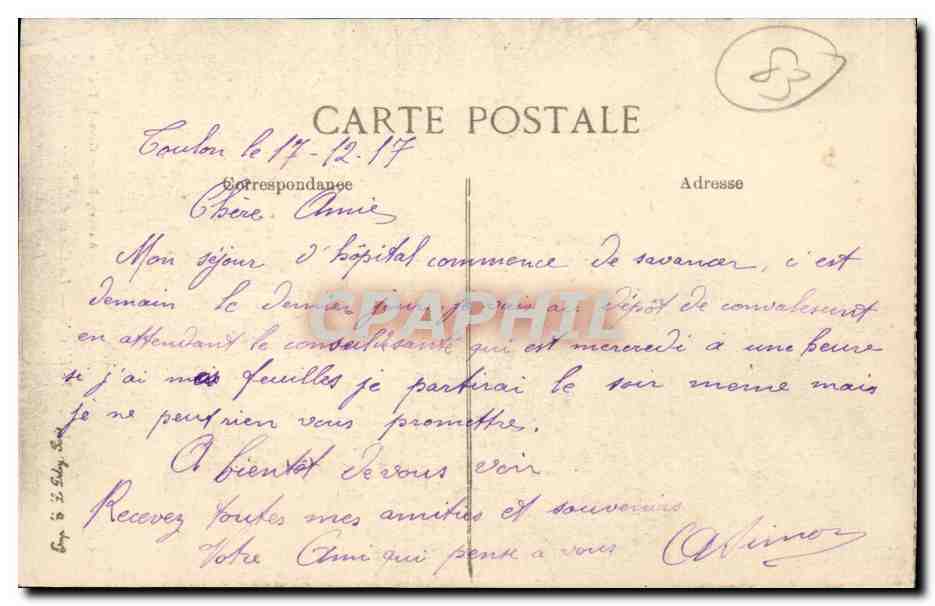 83
CARTE POSTALE
Toulon le 17-12-17
Correspondance
Adresse
Chère Amie
Mon séjour d'hôpital commence de savancer, c'est
demain le dernier jour je vais au dépôt de convalescent
en attendant le conseil santé qui est mercredi à une heure
si j'ai mes feuilles je partirai le soir même mais
je ne peut rien vous promettre.
A bientôt de vous voir
Recevez toutes mes amitiés et souvenirs
Votre Ami qui pense a vous
CPAPHIL
Imp. E. Le Deley, Paris